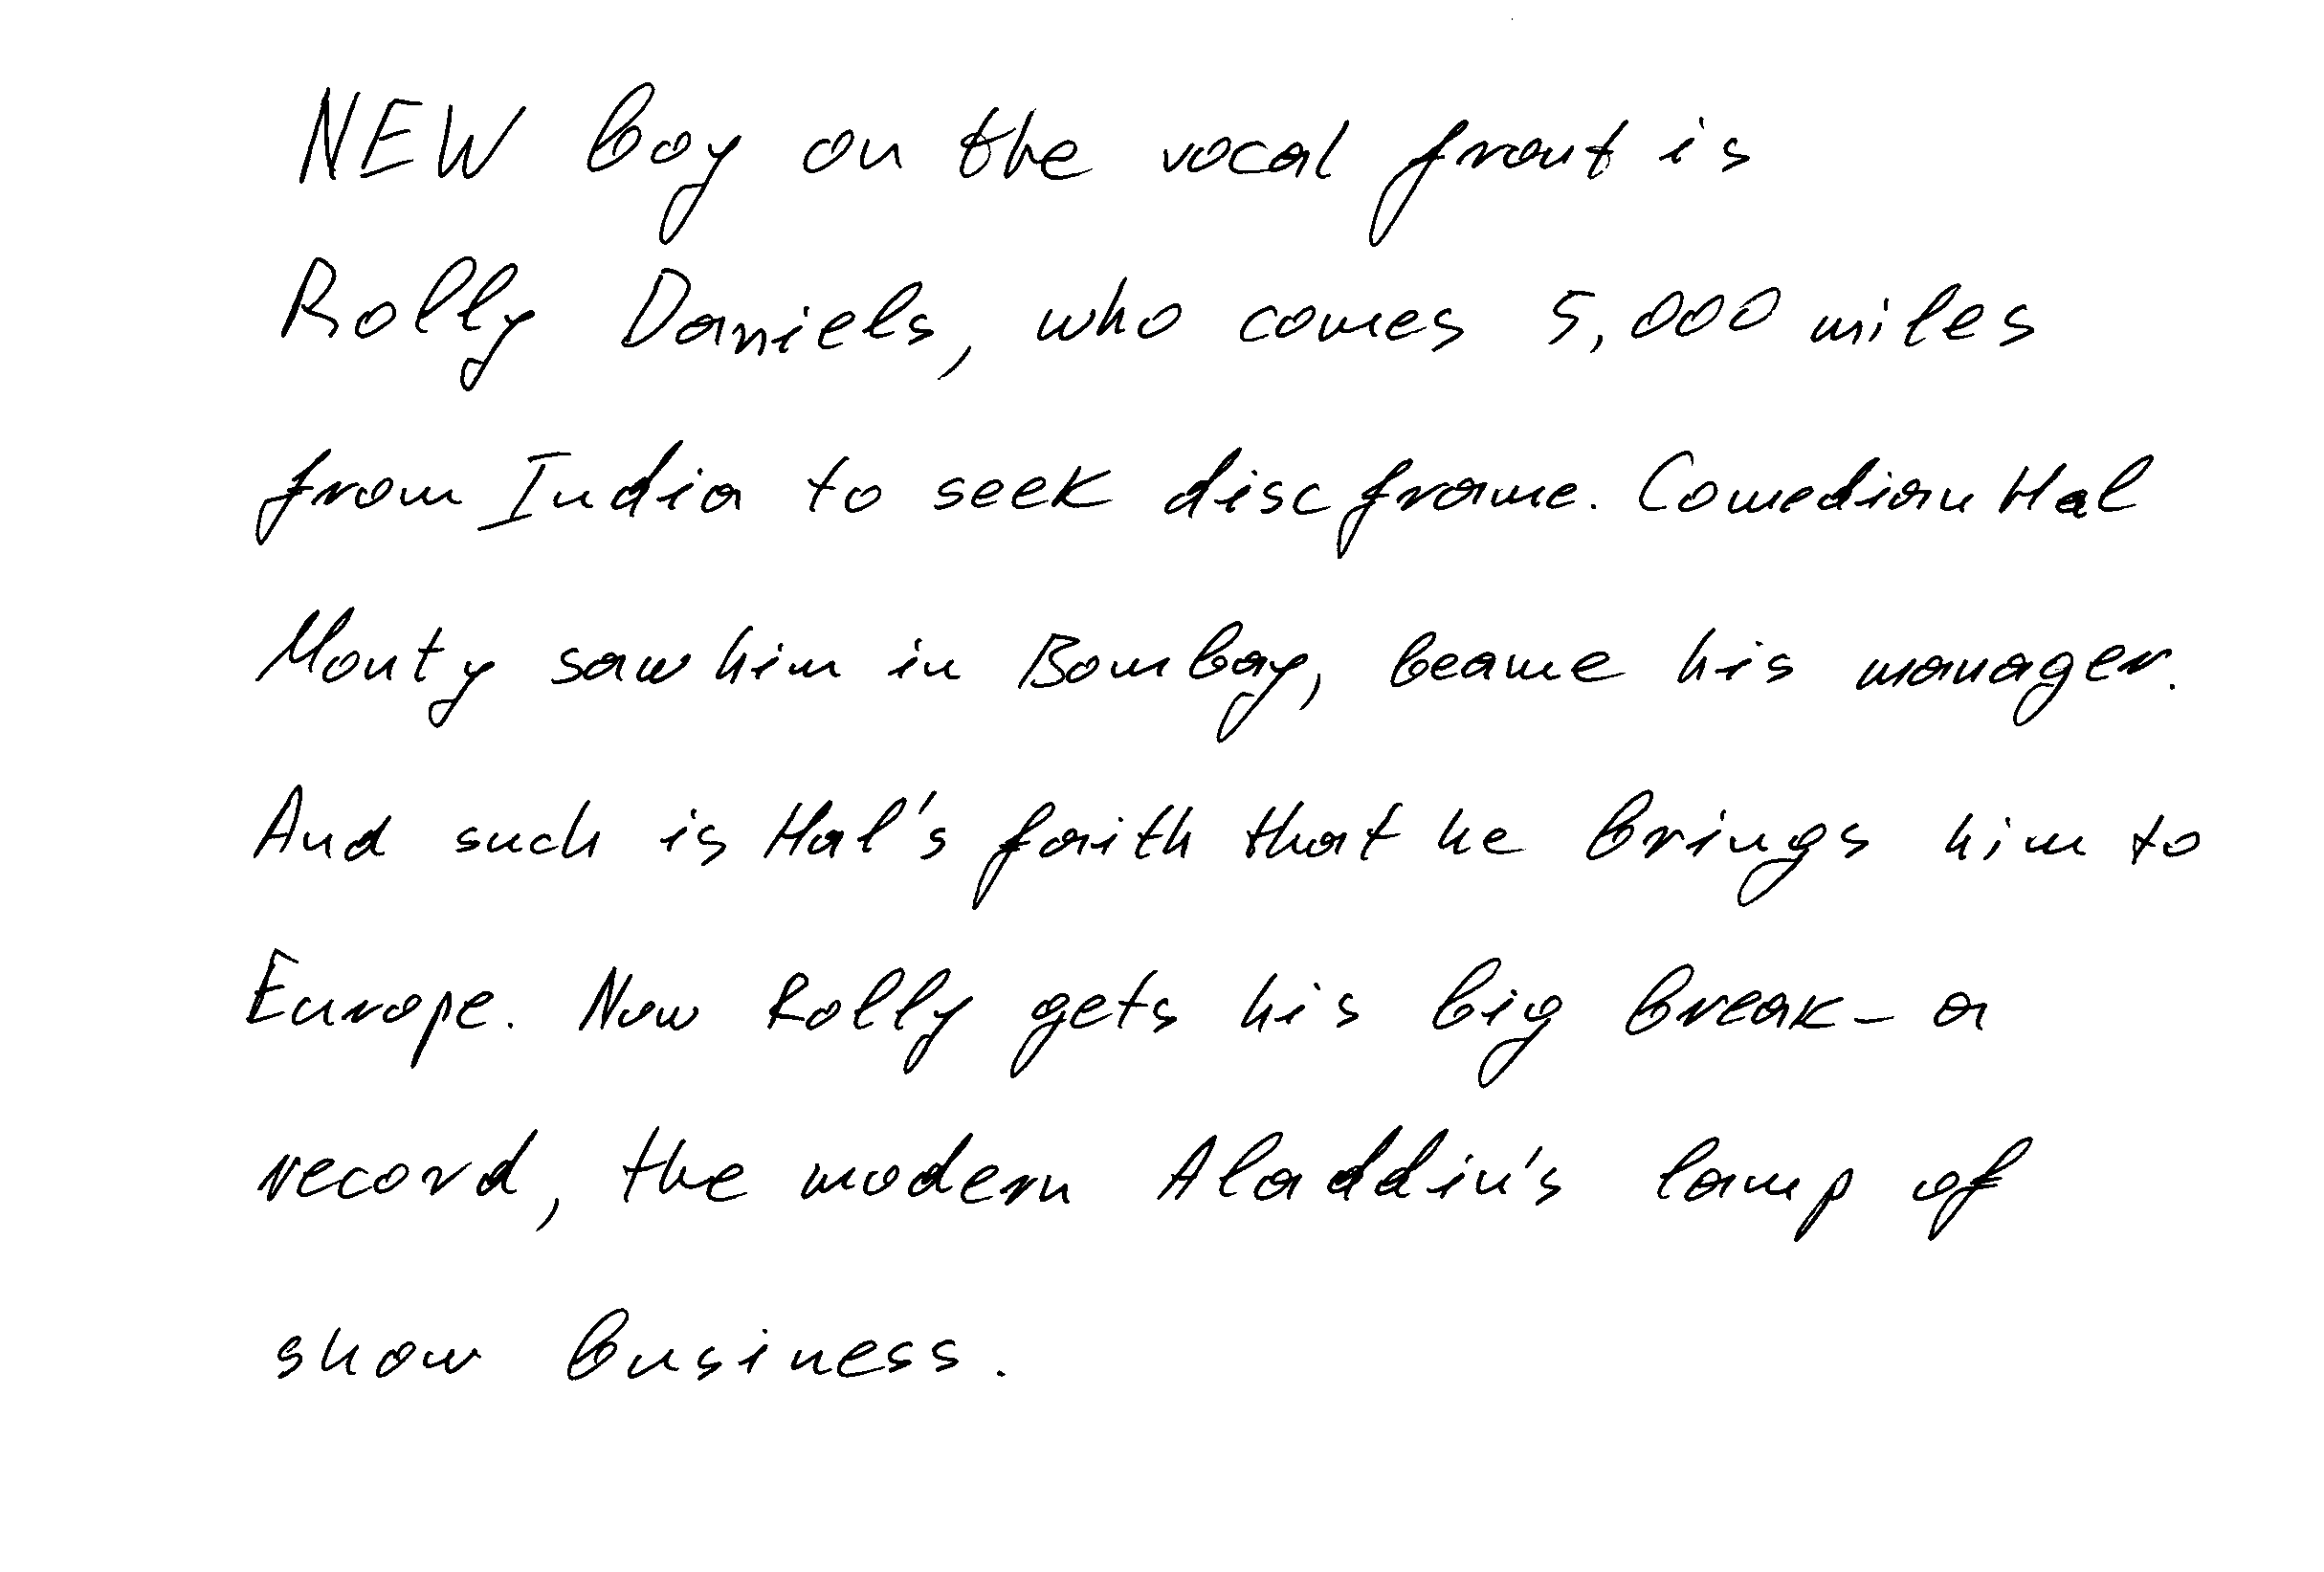 NEW boy on the vocal front is
Rolly Daniels, who comes 5,000 miles
from India to seek disc frame. Comedian Hal
Monty saw him in Bombay, beame his manager.
And such is Hal's faith that he brings him to
Europe. Now Rolly gets his big break - a
record, the modern Aladdin's lamp of
show business.